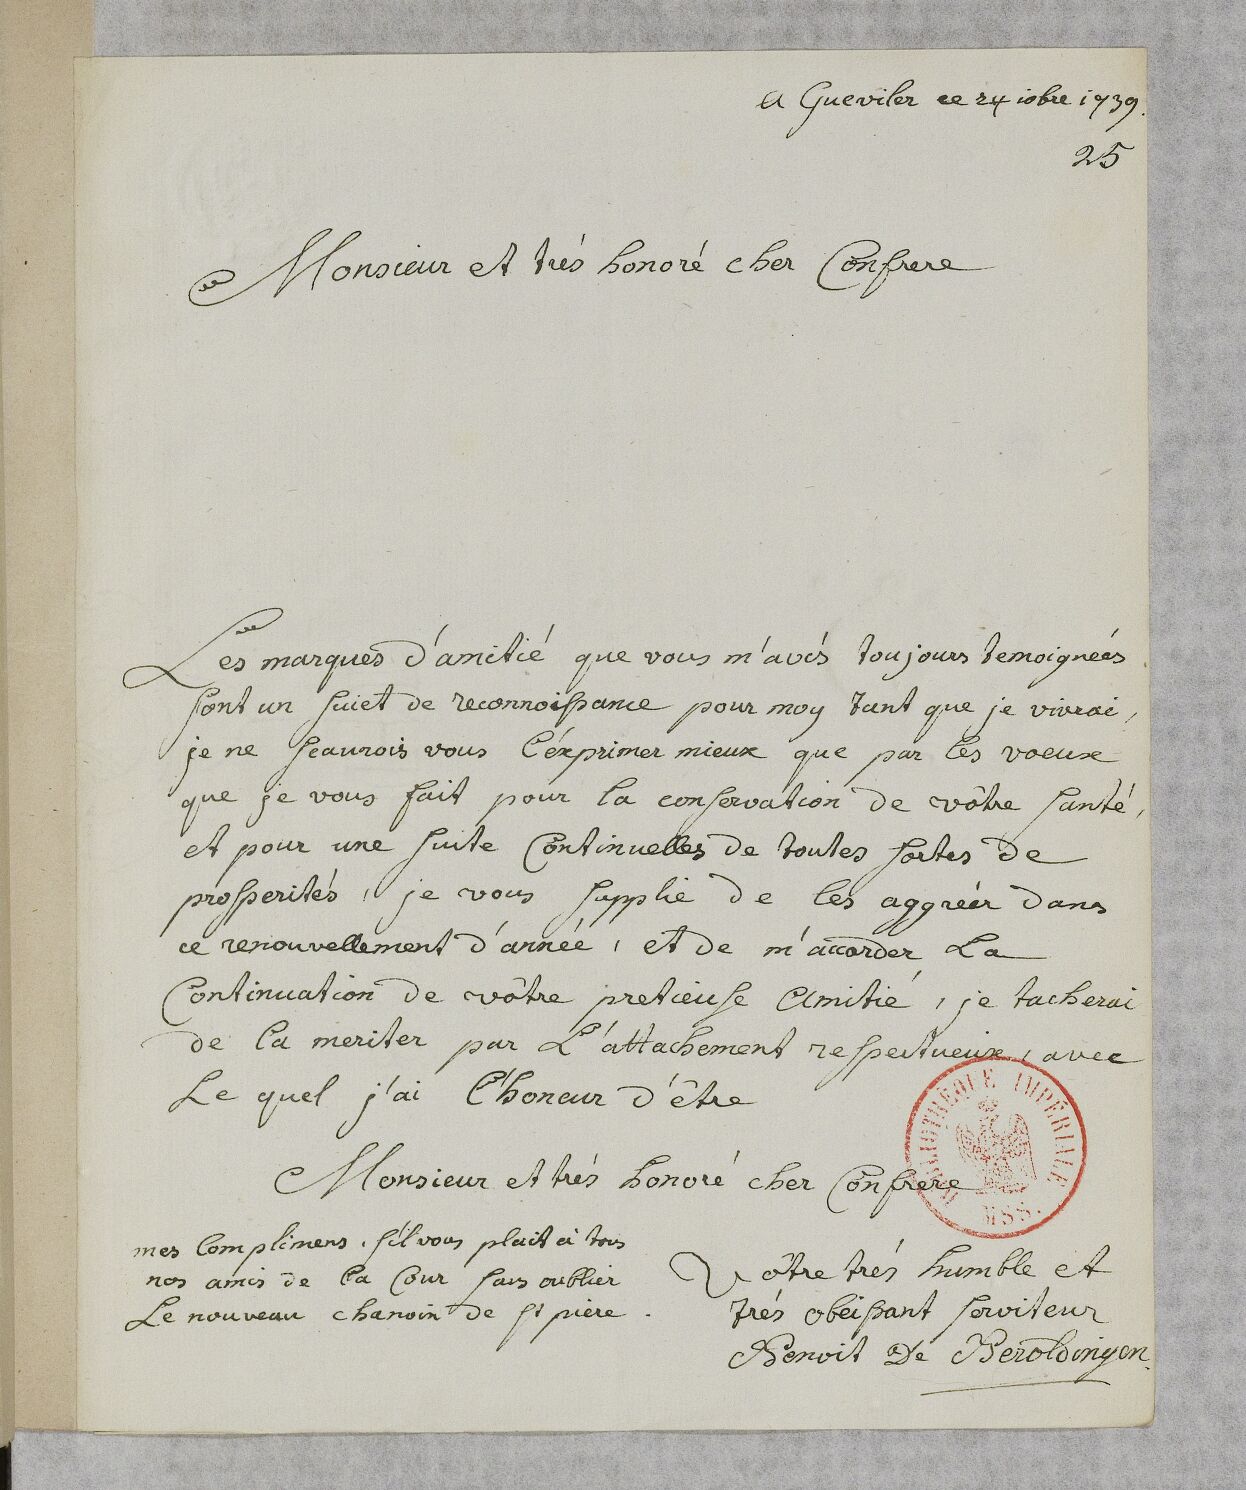 A Gueviler ce 24 iobre 1739.
25
Monsieur et trés honoré cher Confrere
Les marques d'amitié que vous m'avés toujours temoigneés
sont un suiet de reconnoissance pour moy tant que je vivrai,
je ne scaurois vous l'éxprimer mieux que par les voeux
que je vous fait pour la conservation de vôtre santé,
et pour une suite Continuelles de toutes sortes de
prosperités, je vous supplie de les aggréer dans
ce renouvellement d'année, et de m'accorder La
Continuation de vôtre pretieuse Amitié, je tacherai
de la meriter par L'attachement respectueux, avec
Le quel j'ai l'honeur d'être
Monsieur et trés honoré cher Confrere
mes Complimens, s'il vous plait à tous
nos amis de la Cour sans oublier
Le nouveau chanoin de st piere.
Vôtre trés humble et
trés obeissant serviteur
Benoit De Beroldingen.
BIBLIOTHEQUE IMPÉRIALE
MSS.